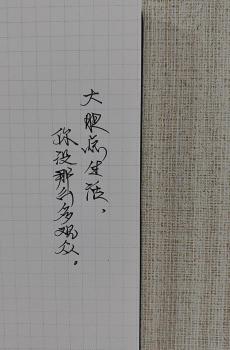 大胆点生活、
你没那么多观众。